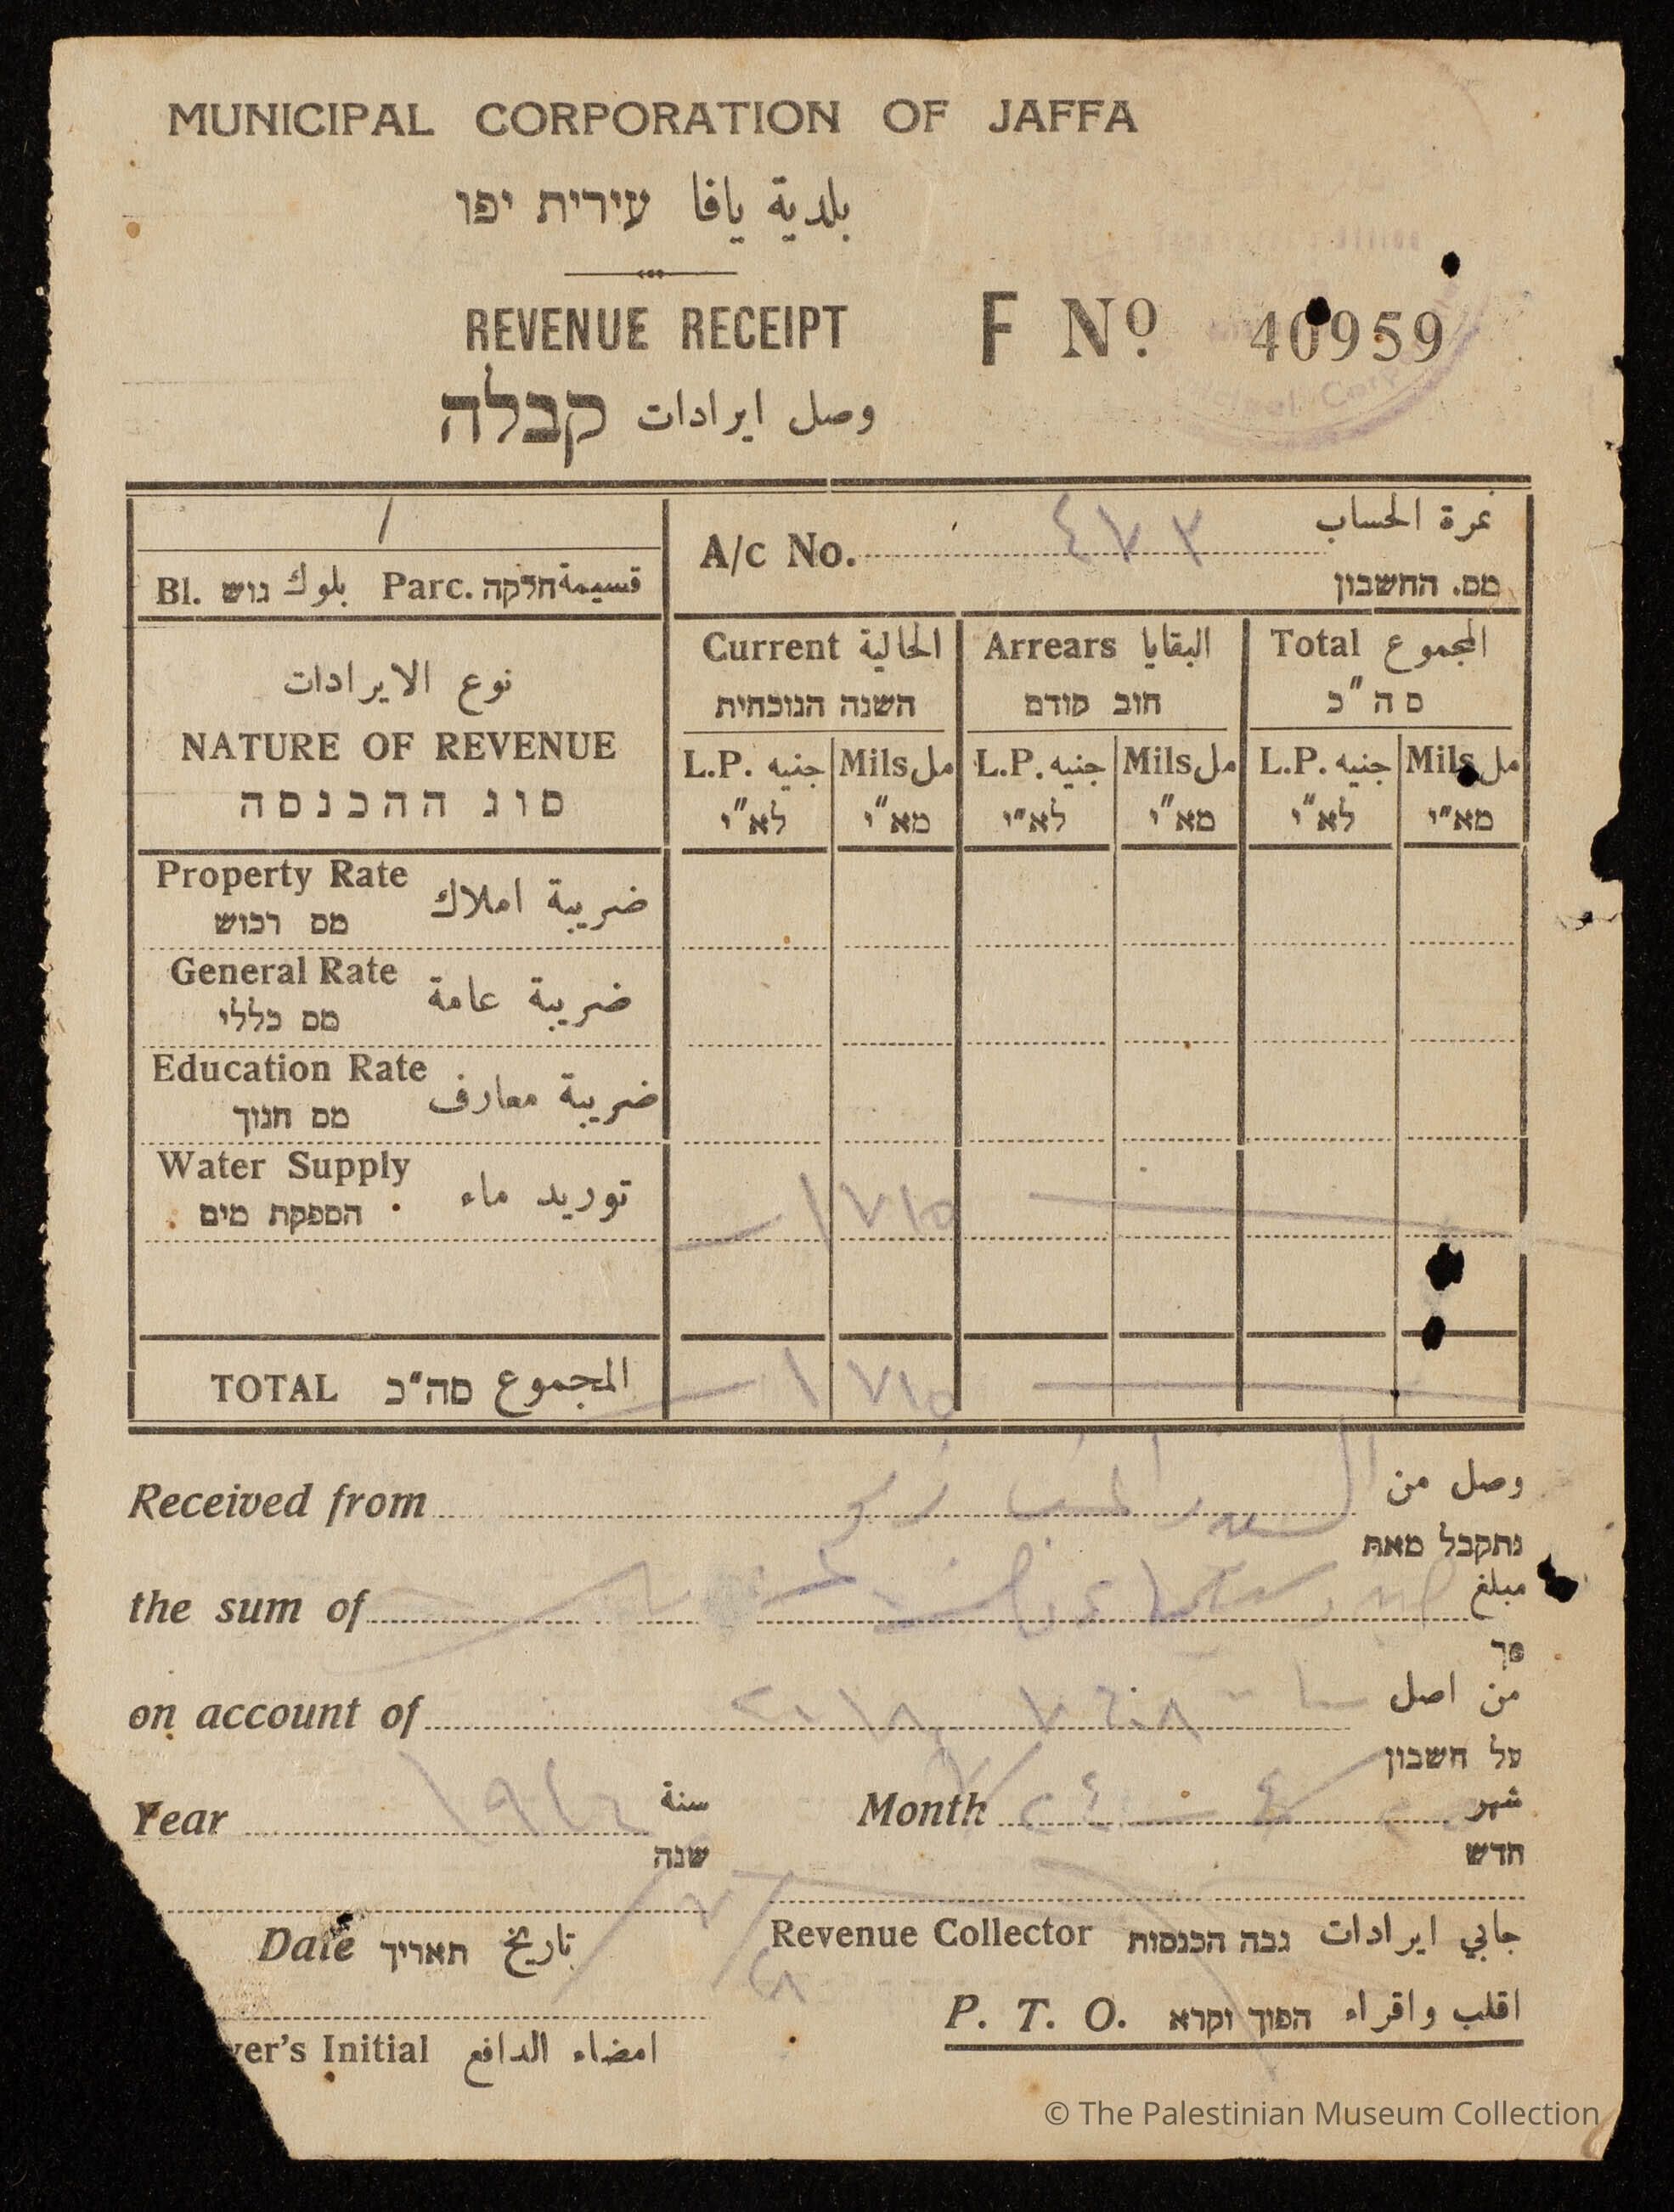 MUNICIPAL CORPORATION OF JAFFA
بلدية يافا עירית יפו
REVENUE RECEIPT
F Nº 40959
وصل ايرادات קבלה
/
Bl. גוש بلوك Parc. חלקה قسيمة
A/c No. ٤٧٣ نمرة الحساب
מס. החשבון
نوع الايرادات
NATURE OF REVENUE
סוג ההכנסה
Current الحالية Arrears البقايا Total المجموع
השנה הנוכחית חוב קודם סה"כ
L.P. جنيه Mils مل L.P. جنيه Mils مل L.P. جنيه Mils مل
לא"י מא"י לא"י מא"י לא"י מא"י
Property Rate ضريبة املاك
מס רכוש
General Rate ضريبة عامة
מס כללי
Education Rate ضريبة معارف
מס חנוך
Water Supply توريد ماء ١ ٧١٥
הספקת מים
TOTAL סה"כ المجموع ١ ٧١٥
Received from وصل من
נתקבל מאת
the sum of مبلغ
סך
on account of من اصل
על חשבון
Year سنة Month شهر
שנה חדש
Date תאריך تاريخ
Revenue Collector גבה הכנסות جابي ايرادات
P. T. O. הפוך וקרא اقلب واقراء
yer's Initial امضاء الدافع
© The Palestinian Museum Collection